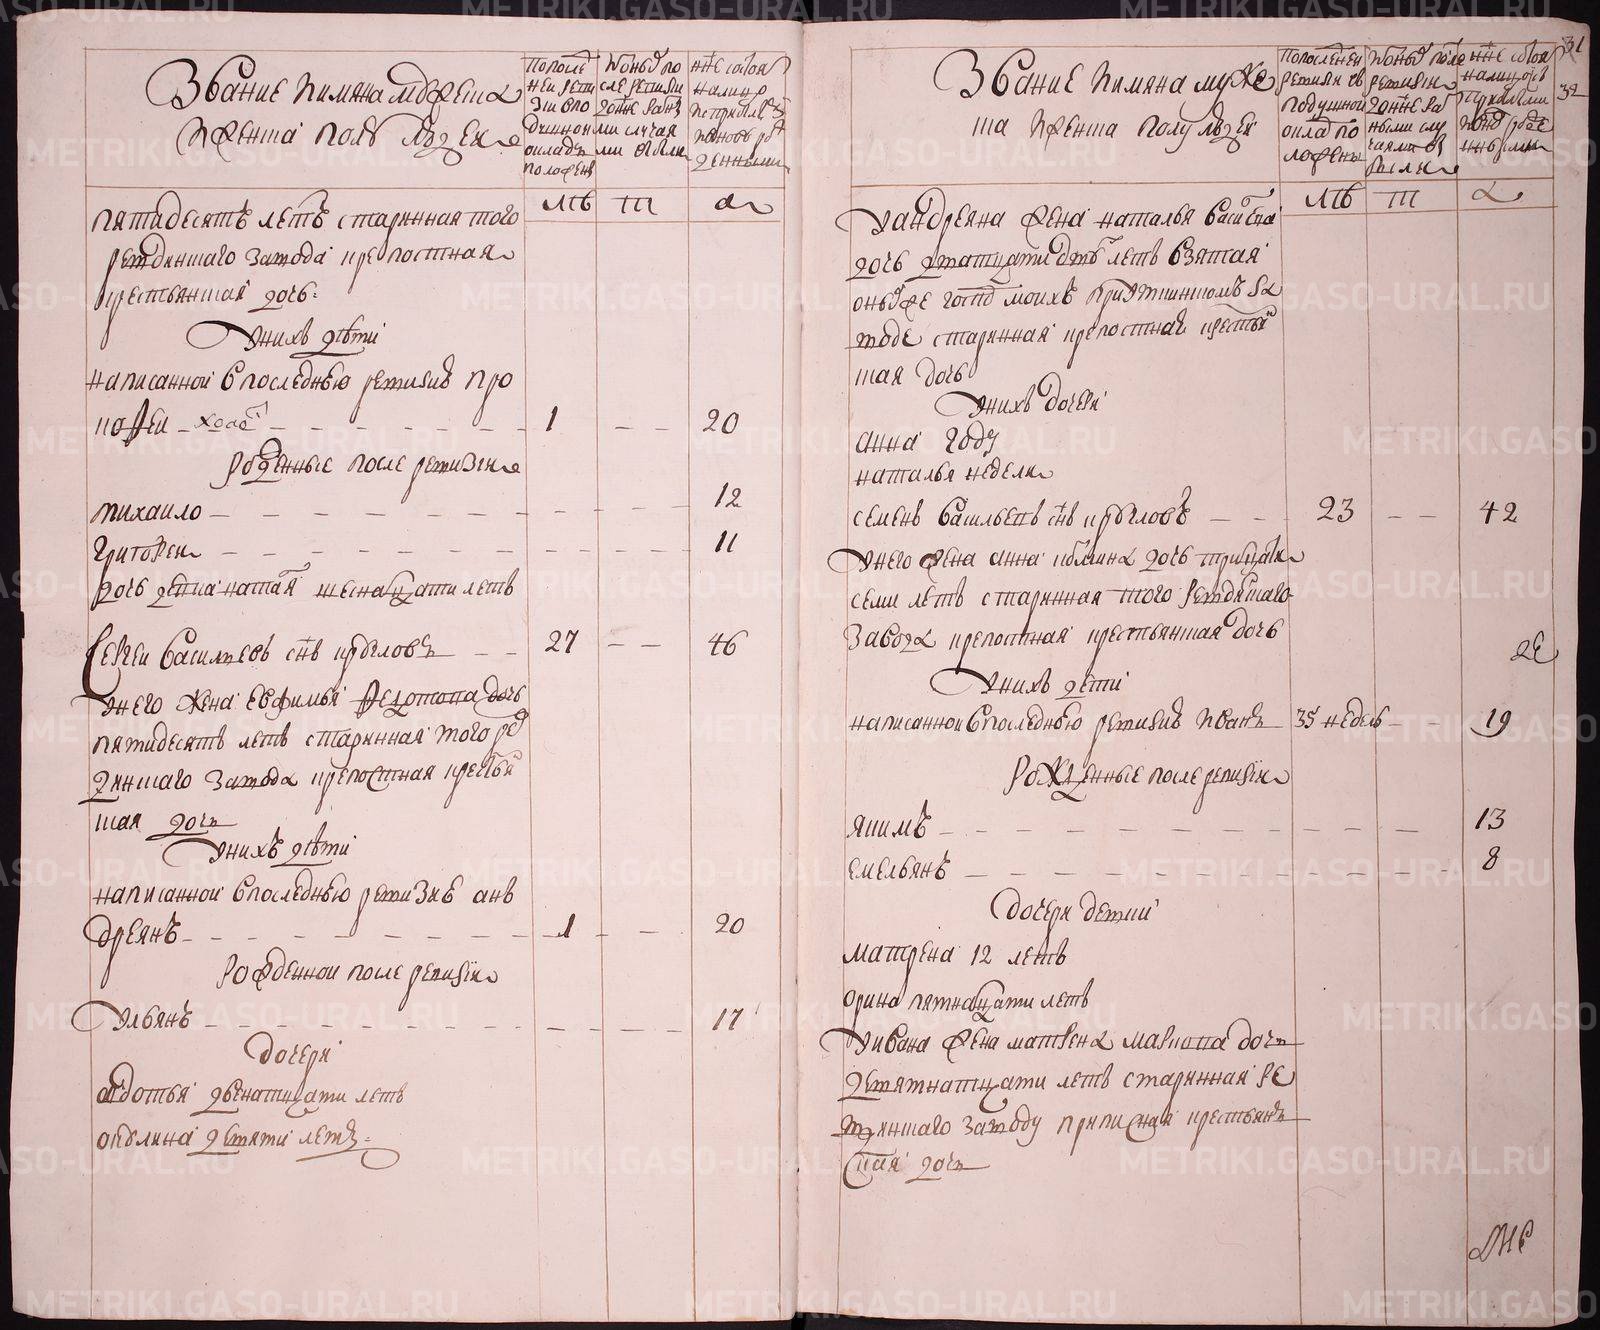 Звание имяна мужеска
и женска полу людеи
По после
ней реви
зии в по
душном
окладе
положен
Из оных по
сле ревизии
разны
ми случая
ми
ныне состоя
налицо
с прибылы
и вновь ро
жденными
лѣ
лѣ
пятидесятъ летъ старинная того
ревдинскаго завода крепостная
крестьянская дочь
У них дѣти
написанной в последнюю ревизию про
кофеи холо 1 20
Рожденные после ревизии
михаило 12
григореи 11
дочь девка шеснатцати летъ
Сергеи васильевъ снъ крыловъ 27 46
У него жена евфимья федотова дочь
пятидесятъ летъ старинная того рев
динскаго завода крепостная крестьян
ская дочь
У нихъ дѣти
написанной в последнюю ревизию анъ
дреянъ 1 20
Рожденнои после ревизии
Ульянъ 17
Дочери
авдотья двенатцати летъ
акулина девяти летъ
31
32
Звание имяна муже
ска и женска полу людеи
По последней
ревизии в
подушной
оклад по
ложенъ
Из оных после
ревизии
разными слу
чаями
были
ныне состоя
налицо
с прибылыми
и вновь рожде
нными
лѣ
лѣ
У андреяна жена наталья васильева
дочь дватцати летъ взятая
оных же моихъ за
воде старинная крепостная крестьян
ская дочь
У нихъ дочери
анна году
наталья недели
семенъ васильевъ снъ крыловъ 23 42
У него жена анна дочь тритцати
семи летъ старинная того ревдинскаго
завода крепостная крестьянская дочь
У нихъ дети
написаннои в последнюю ревизию иванъ 35 недель 19
Рожденные после ревизии
якимъ 13
емельянъ 8
дочери девки
матрена 12 летъ
орина пятнатцати летъ
У ивана жена матрена маркова дочь
девятнатцати летъ старинная ре
вдинскаго заводу приписная крестьянъ
ская дочь